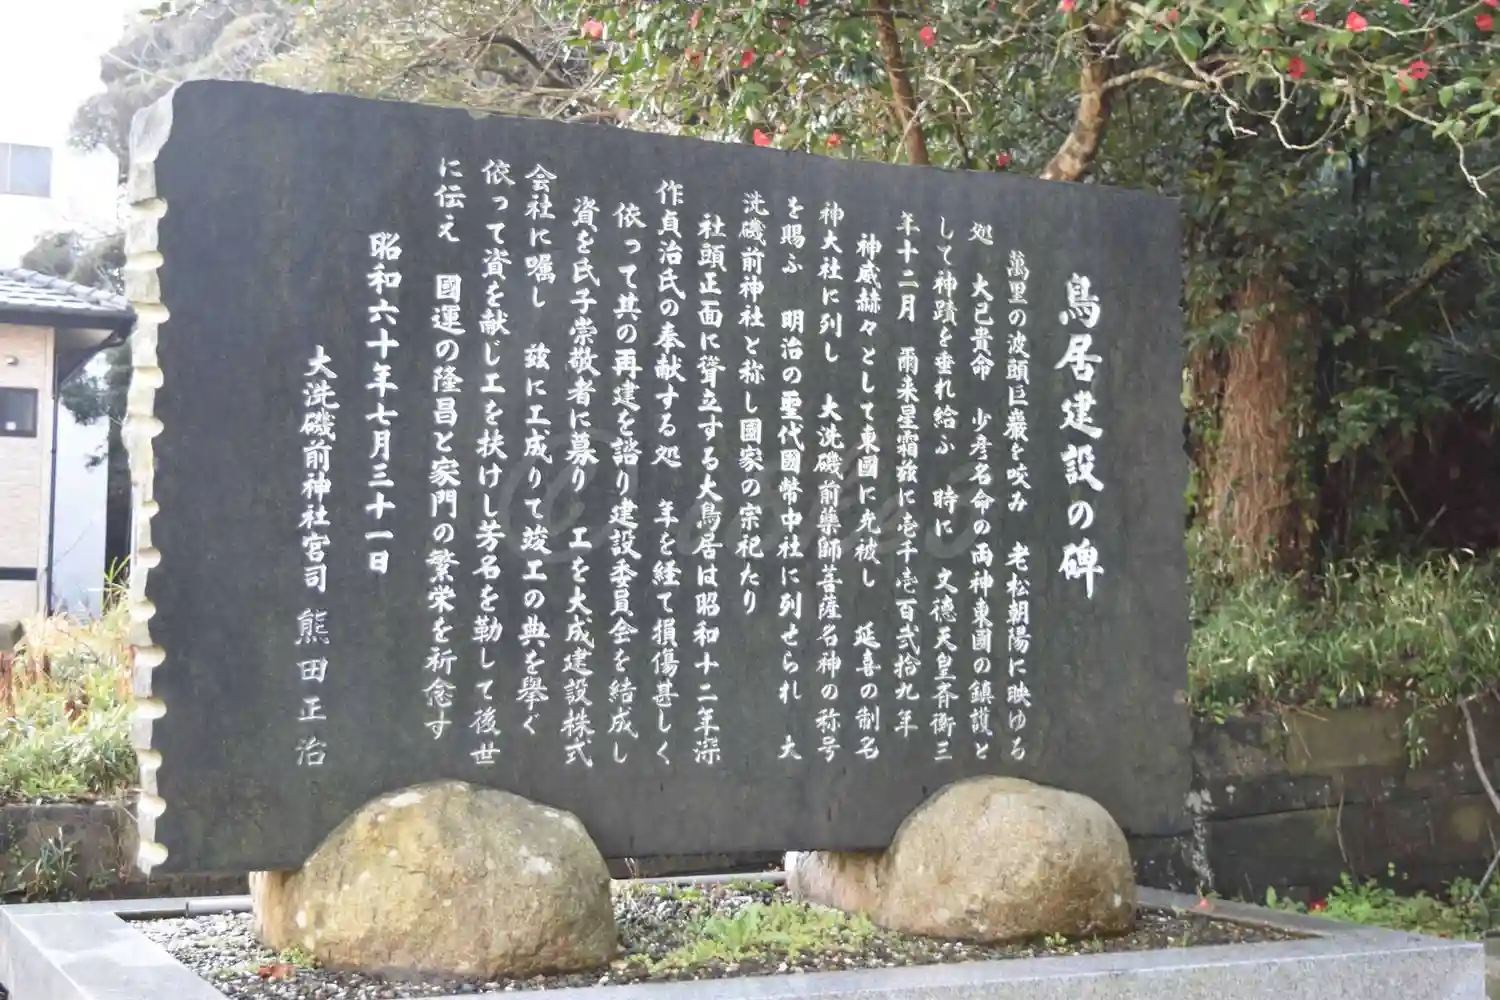 鳥居建設の碑
萬里の波頭巨巌を咬み 老松朝陽に映ゆる
処 大己貴命 少彦名命の両神東國の鎮護と
して神蹟を垂れ給ふ 時に 文徳天皇斉衡三
年十二月 爾来星霜茲に壱千壱百弐拾九年
神威赫々として東國に光被し 延喜の制名
神大社に列し 大洗磯前藥師菩薩名神の称号
を賜ふ 明治の聖代國幣中社に列せられ 大
洗磯前神社と称し國家の宗祀たり
社頭正面に聳立する大鳥居は昭和十二年深
作貞治氏の奉献する処 年を経て損傷甚しく
依って其の再建を諮り建設委員会を結成し
資を氏子崇敬者に募り 工を大成建設株式
会社に嘱し 茲に工成りて竣工の典を擧ぐ
依って資を献じ工を扶けし芳名を勒して後世
に伝え 國運の隆昌と家門の繁栄を祈念す
昭和六十年七月三十一日
大洗磯前神社宮司 熊田正治